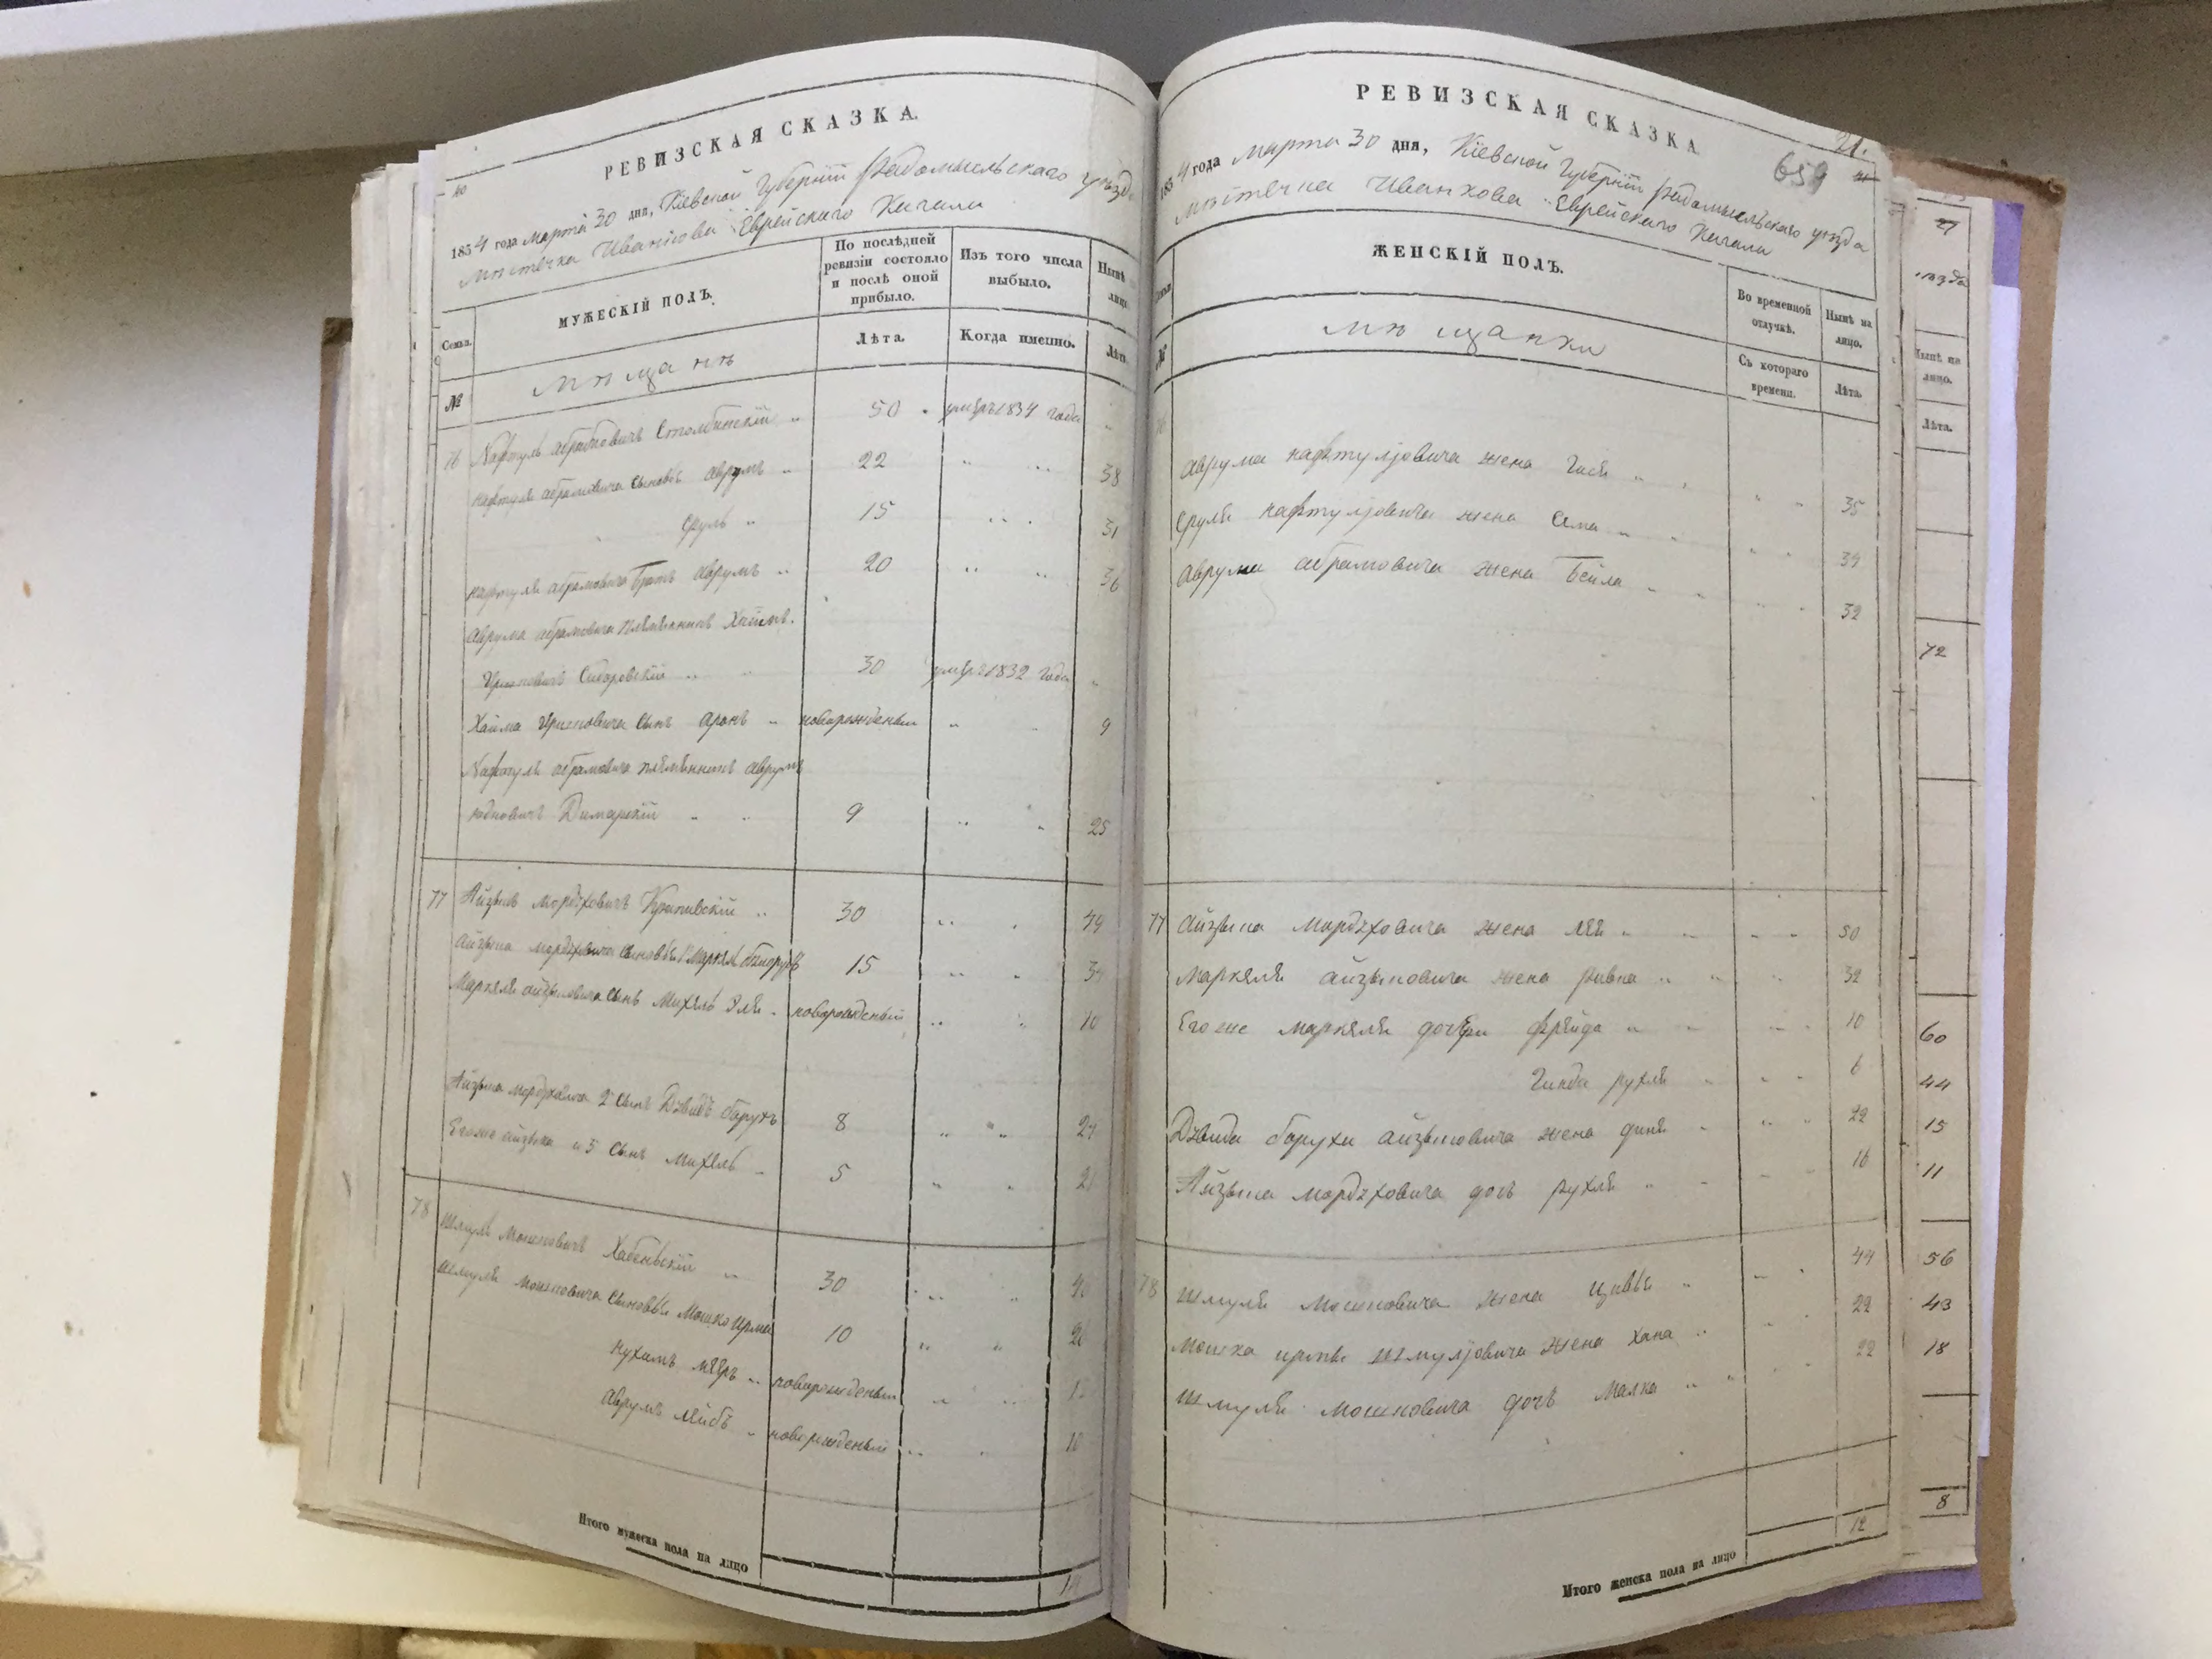 РЕВИЗСКАЯ СКАЗКА.
1854 года Марта 30 дня, Кіевской Губерніи Радомысльскаго уѣзда
Мѣстечка Иванкова Еврейскаго Кагала
Семьи. МУЖЕСКІЙ ПОЛЪ. По послѣдней ревизіи состояло и послѣ оной прибыло. Изъ того числа выбыло. Нынѣ на лицо
№ Мѣщанѣ Лѣта. Когда именно. Лѣта
76 Нафтуль абрамовичъ Столбинскій 50 умеръ 1834 года
Нафтуля абрамовича сыновья аврумъ 22 38
Сруль 15 31
Нафтуля абрамовича братъ аврумъ 20 36
аврума абрамовича племянникъ Хаимъ
Сидоровскій 30 умеръ 1832 года
Хаима сынъ аронъ новорожденный 9
Нафтуля абрамовича племянникъ аврумъ
Димарскій 9 25
77 Айзыкъ мордховичъ 30
айзыка мордховича сыновья 1 Маркель 15
Маркеля айзыковича сынъ Михель Эля новорожденый 10
Айзыка мордховича 2 сынъ Дувидъ борухъ 8
Егоже айзыка и 3 сынъ Михель 5
78 Шмуль Мошковичъ Хабенскій 30
Шмуля мошковича сыновья Мошко 10
Нухимъ новорожденый
аврумъ лейбъ новорожденый
Итого мужеска пола на лицо
РЕВИЗСКАЯ СКАЗКА.
21.
659
1854 года Марта 30 дня, Кіевской Губерніи Радомысльскаго уѣзда
Мѣстечка Иванкова Еврейскаго Кагала
ЖЕНСКІЙ ПОЛЪ. Во временной отлучкѣ. Нынѣ на лицо.
№ Мѣщанки Съ котораго времени. Лѣта.
76
аврума нафтулјовича жена Гися 35
Сруля нафтулјовича жена Сима
аврума абрамовича жена Бейла 32
77 айзыка Мордховича жена лея 50
маркеля айзыковича жена ривка 32
Егоже маркеля дочери фрейда 10
Гинда рухля 6
Дувида боруха айзыковича жена диня 22
Айзыка мордховича дочь рухля 16
78 Шмуля Мошковича жена Цивья 44
Мошка шмулјовича жена хана 22
шмуля мошковича дочь Малка 22
12
Итого женска пола на лицо
Нынѣ на лицо.
Лѣта.
72
60
44
15
11
56
43
18
8